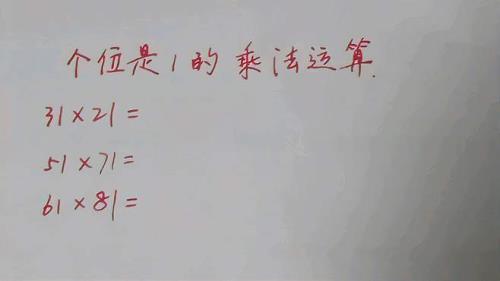 个位是1的乘法运算.
31×21=
51×71=
61×81=